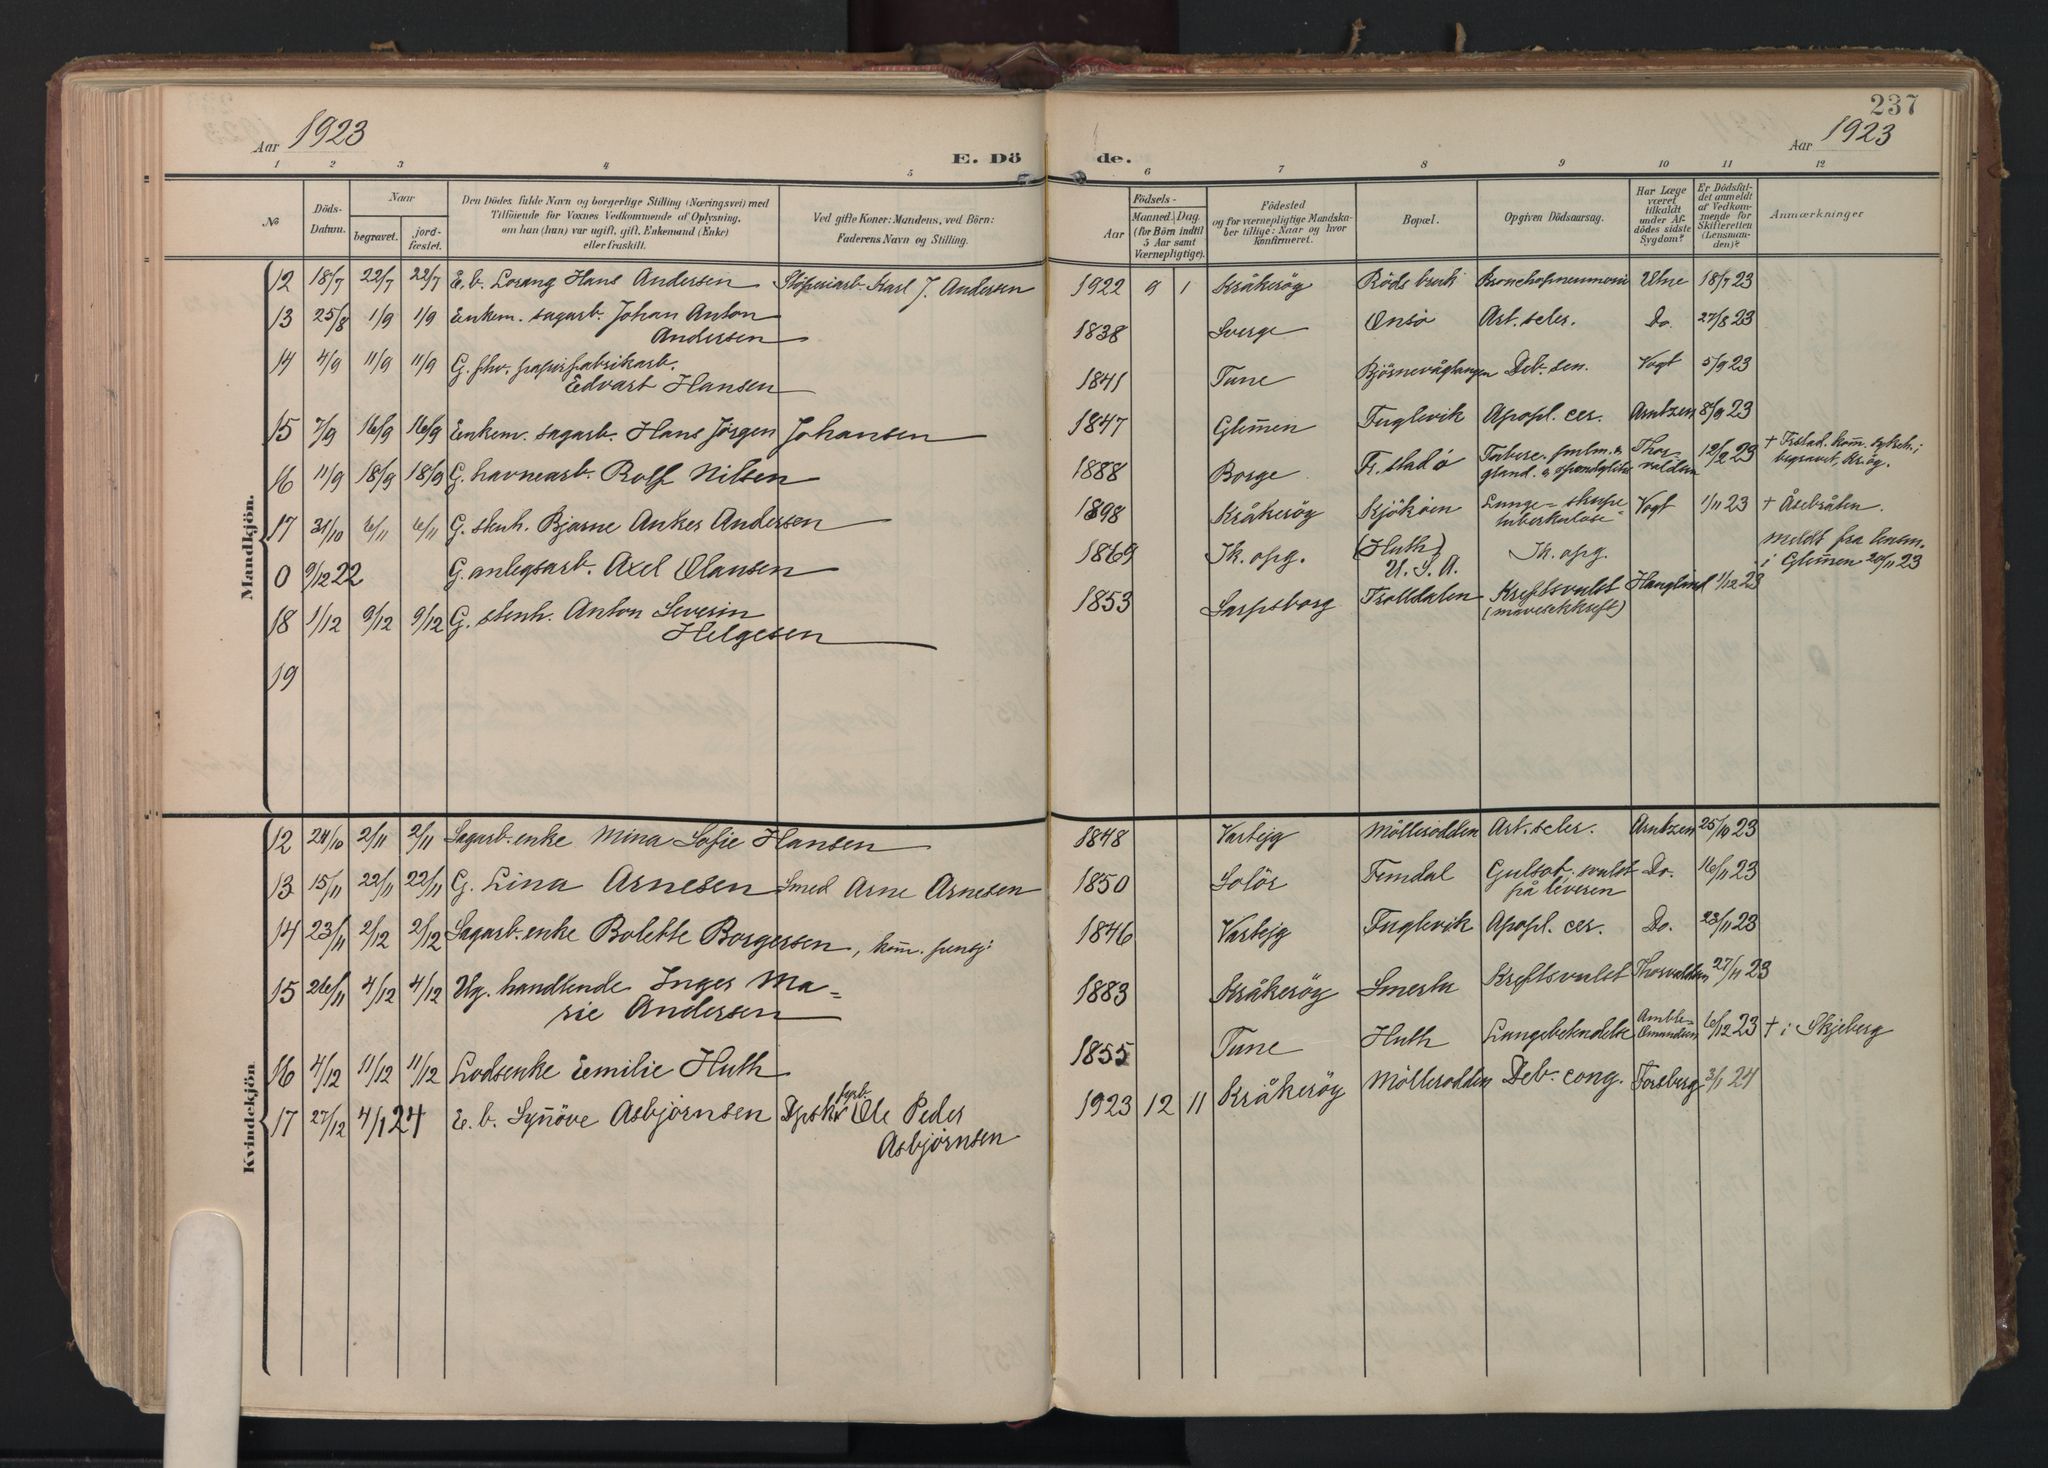 237
Aar 1923
Aar 1923
E. Dö de.
1 2 3 4 5 6 7 8 9 10 11 12
No
Döds-Datum.
Naar
begravet.
jord-fæstet.
Den Dödes fulde Navn og borgerlige Stilling (Næringsvei) med
Tilföiende for Voxnes Vedkommende af Oplysning,
om han (hun) var ugift, gift, Enkemand (Enke)
eller fraskilt.
Ved gifte Koner: Mandens, ved Börn:
Faderens Navn og Stilling.
Födsels-
Aar
Maaned. Dag.
(for Börn indtil
5 Aar samt
Værnepligtige).
Födested
og for værnepligtige Mandska-
ber tillige: Naar og hvor
konfirmeret.
Bopæl.
Opgiven Dödsaarsag.
Har Læge
været
tilkaldt
under Af-
dödes sidste
Sygdom?
Er Dödsfal-
det anmeldt
af Vedkom-
mende for
Skifteretten
(Lensman-
den)?
Anmærkninger
Mandkjön.
12 18/7 22/7 22/7 E. b. Lorang Hans Andersen Stöperiarb. Karl J. Andersen 1922 9 1 Kråkeröy Röds bruk Bronchopneumoni Uhne 18/7 23
13 25/8 1/9 1/9 Enkem. sagarb. Johan Anton
Andersen 1838 Sverge Onsö Art. scler. Do. 27/8 23
14 4/9 11/9 11/9 G. fhv. papirfabrikarb.
Edvart Hansen 1841 Tune Björnevågtangen Deb. sen. Vogt 5/9 23
15 7/9 16/9 16/9 Enkem. sagarb. Hans Jörgen Johansen 1847 Glem̄en Fuglevik Apopl. cer. Arntzen 8/9 23
16 11/9 18/9 18/9 G. havnearb. Rolf Nilsen 1888 Borge Fr. stad ö Tuberc. pulm. &
gland. & Thor-
valdsen 12/9 23 + Frstad. kom̄. sykeh.;
begravet, Kröy.
17 31/10 6/11 6/11 G. stenh. Bjarne Anker Andersen 1898 Kråkeröy Kjököen Lunge- & strupe
tuberkulose Vogt 1/11 23 + Åsebråten.
0 9/12 22 G. anlegsarb. Axel Olausen 1869 Ik. opg. (Huth)
U. S. A. Ik. opg. Meldt fra lensm.
i Glem̄en 20/11 23
18 1/12 9/12 9/12 G. stenh. Anton Severin
Helgesen 1853 Sarpsborg Trolldalen Kreftsvulst
(mavesekkreft) Hauglind 1/12 23
19
Kvindekjön
12 24/10 2/11 2/11 Sagarb. enke Mina Sofie Hansen 1848 Varteig Mölleredden Art. scler. Arntzen 25/10 23
13 15/11 22/11 22/11 G. Lina Arnesen Smed Arne Arnesen 1850 Solör Femdal Gulsot, svulst
på leveren Do. 16/11 23
14 23/11 2/12 2/12 Sagarb. enke Bolette Borgersen, kom̄. pensj. 1846 Varteig Fuglevik Apopl. cer. Do. 23/11 23
15 26/11 4/12 4/12 Ug. handlende Inger Ma-
rie Andersen 1883 Kråkeröy Smertu Kreftsvulst Thorvaldsen 27/11 23
16 4/12 11/12 11/12 Lodsenke Emilie Huth 1855 Tune Huth Lungebetendelse 6/12 23 + i Skjeberg
17 27/12 4/1 24 E. b. Syn̄öve Asbjörnsen Ole Peder
Asbjörnsen 1923 12 11 Kråkeröy Mölleredden Deb. cong. Forsberg 3/1 24